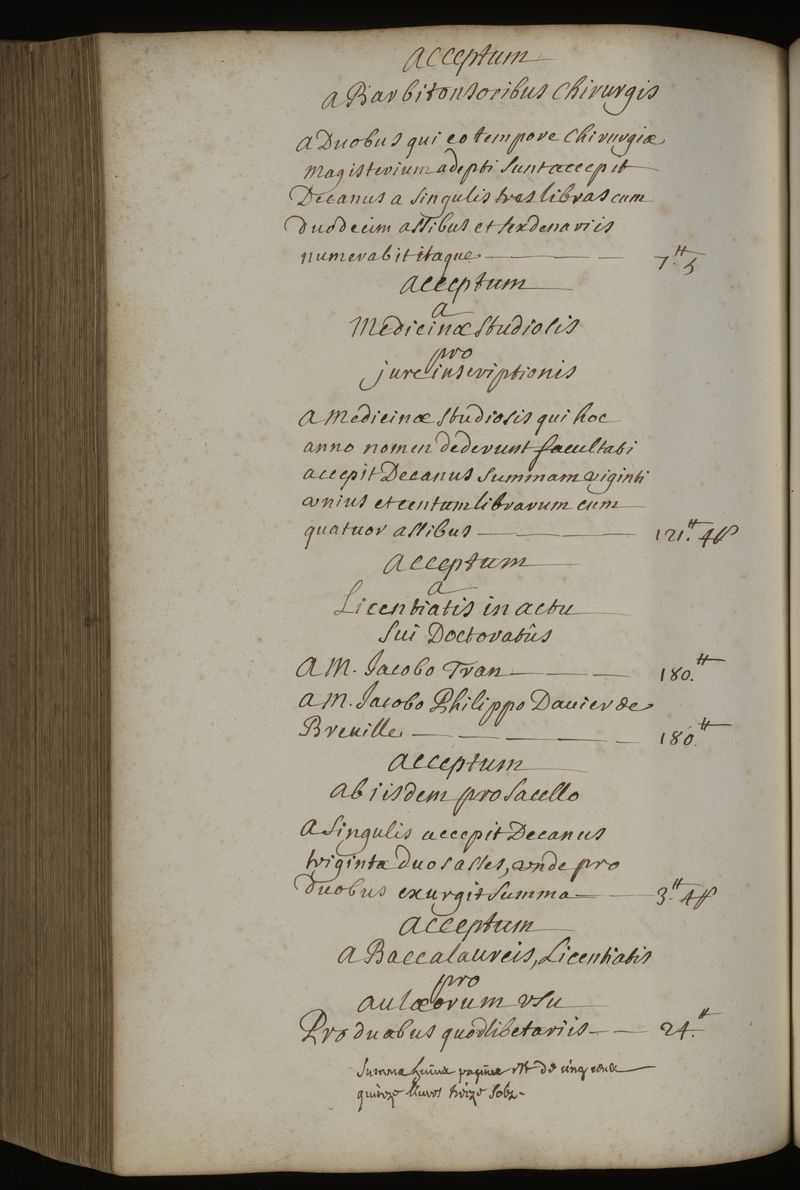 acceptum
a Barbitonsoribus Chirurgis
a Duobus qui eo tempore Chirurgiæ
magisterium adepti sunt accepit
Decanus a singulis tres libras cum
duodecim assibus et sex denariis
numerabit itaque 7.tt 5
acceptum
a
Medicinæ Studiosis
pro
jure inscriptionis
a Medicinæ Studiosis qui hoc
anno nomen dederunt facultati
accepit Decanus Summam viginti
unius et centum librarum cum
quatuor assibus 121.tt 4ſ
acceptum
a
Licentiatis in actu
sui Doctoratûs
a M. Jacobo Tran 180.tt
a M. Jacobo Philippo Dauier de
Breuille 180.tt
acceptum
ab iisdem pro Sacello
a Singulis accepit Decanus
triginta duos asses, unde pro
duobus exurgit summa 3.tt 4ſ
acceptum
a Baccalaureis, Licentiatis
pro
aulæorum usu
Pro duabus quodlibetariis 24.tt
Summa huius paginæ est de cinq cens
quinze liures treize solz